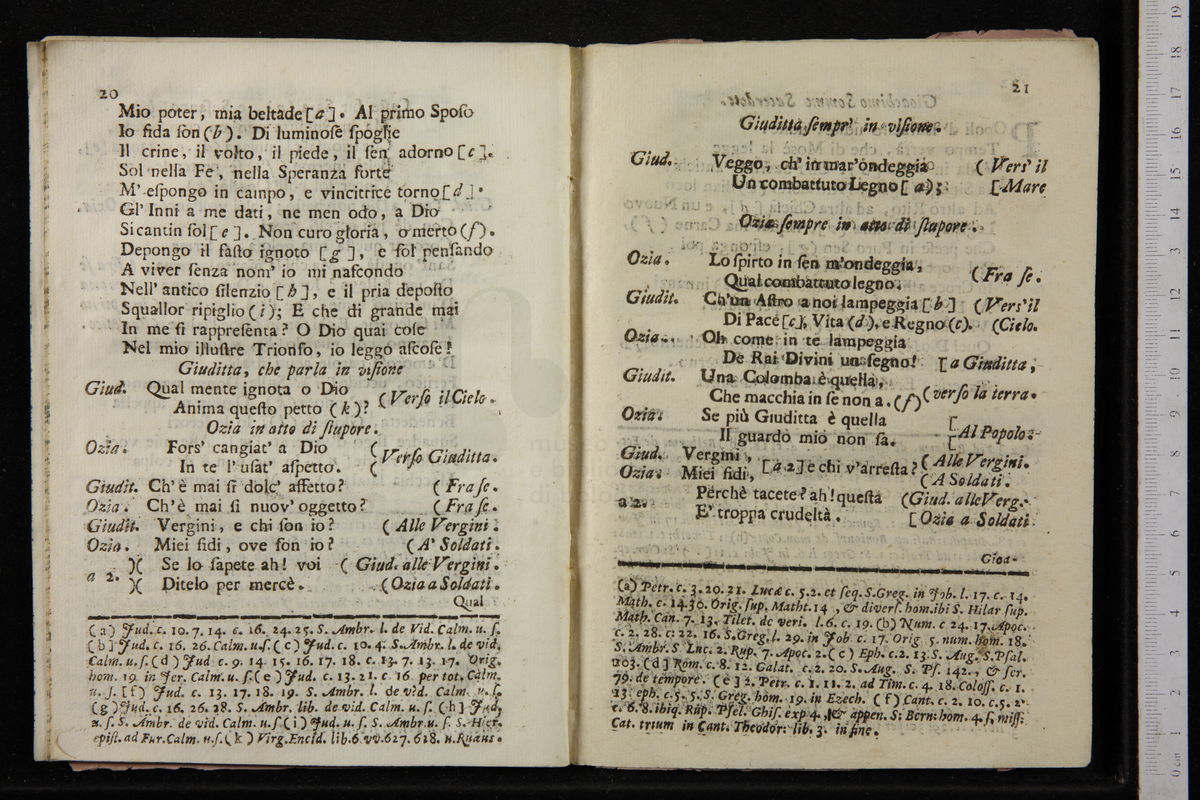 20
Mio poter, mia beltade [a]. Al primo Spoſo
Io fida ſon (b). Di luminoſe ſpoglie
Il crine, il volto, il piede, il ſen adorno [c].
Sol nella Fe, nella Speranza forte
M' eſpongo in campo, e vincitrice torno [d].
Gl' Inni a me dati, ne men odo, a Dio
Si cantin ſol [e]. Non curo gloria, o merto (f).
Depongo il faſto ignoto [g], e ſol penſando
A viver ſenza nom' io mi naſcondo
Nell' antico ſilenzio [h], e il pria depoſto
Squallor ripiglio (i); E che di grande mai
In me ſi rappreſenta? O Dio quai coſe
Nel mio illuſtre Trionfo, io leggo aſcoſe!
Giuditta, che parla in viſione
Giud. Qual mente ignota o Dio
Anima queſto petto (k)? (Verſo il Cielo.
Ozia in atto di ſtupore.
Ozia. Fors' cangiat' a Dio (
In te l' uſat' aſpetto. ( Verſo Giuditta.
Giudit. Ch' è mai ſì dolc' affetto? (Fra ſe.
Ozia. Ch' è mai ſì nuov' oggetto? (Fra ſe.
Giudit. Vergini, e chi ſon io? (Alle Vergini.
Ozia. Miei fidi, ove ſon io? (A' Soldati.
a 2. )( Se lo ſapete ah! voi (Giud. alle Vergini.
)( Ditelo per mercè. (Ozia a Soldati.
Qual
(a) Jud. c. 10. 7. 14. c. 16. 24. 25. S. Ambr. l. de Vid. Calm. u. ſ.
(b) Jud. c. 16. 26. Calm. u. ſ. (c) Jud. c. 10. 4. S. Ambr. l. de vid.
Calm. u. ſ. (d) Jud c. 9. 14. 15. 16. 17. 18. c. 13. 7. 13. 17. Orig.
hom. 19. in Jer. Calm. u. ſ. (e) Jud. c. 13. 21. c. 16. per tot. Calm.
u. ſ. [f) Jud. c. 13. 17. 18. 19. S. Ambr. l. de vid. Calm. u. ſ.
(g) Jud. c. 16. 26. 28. S. Ambr. lib. de vid. Calm. u. ſ. (h] Jud.
u. ſ. S. Ambr. de vid. Calm. u. ſ (i) Jud. u. ſ. S. Ambr. u. ſ. S. Hier.
epiſt. ad Fur. Calm. u. ſ. (k) Virg. Eneid. lib. 6. vv. 627. 628. u. Ruaus.
21
Giuditta ſempr' in viſione.
Giud. Veggo, ch' in mar' ondeggia (Vers' il
Un combattuto Legno [a); [Mare
Ozia ſempre in atto di ſtupore.
Ozia. Lo ſpirto in ſen m'ondeggia, (Fra ſe.
Qual combattuto legno.
Giudit. Ch'un Aſtro a noi lampeggia [b] (Vers' il
Di Pace [c], Vita (d), e Regno (e). (Cielo.
Ozia. Oh come in te lampeggia
De Rai Divini un ſegno! [a Giuditta,
Giudit. Una Colomba è quella,
Che macchia in ſe non a. (f) (verſo la terra.
Ozia. Se più Giuditta è quella [
Il guardo mio non ſa. [Al Popolo.
Giud. Vergini, [a 2] e chi v'arreſta? (Alle Vergini.
Ozia. Miei fidi, (A Soldati.
a 2. Perchè tacete? ah! queſta (Giud. alle Verg.
E' troppa crudeltà. [Ozia a Soldati
Gioa-
(a) Petr. c. 3. 20. 21. Lucæ c. 5. 2. et ſeq. S. Greg. in Job. l. 17. c. 14.
Math. c. 14. 30. Orig. ſup. Matht. 14, & diverſ. hom. ibi S. Hilar ſup.
Math. Can. 7. 13. Tilet. de veri. l. 6. c. 19. (b) Num. c 24. 17. Apoc.
c. 2. 28. c. 22. 16. S. Greg. l. 29. in Job c. 17. Orig 5. num. hom. 18.
S. Ambr. S. Luc. 2. Rup. 7. Apoc. 2. (c) Eph. c. 2. 13. S. Aug. S. Pſal.
103. (d] Rom. c. 8. 12. Galat. c. 2. 20. S. Aug. S. Pſ. 142., & ſer.
79. de tempore. (e] 2. Petr. c. 1. 11. 2. ad Tim. c. 4. 18. Coloſſ. c. 1.
13. eph. c. 5. 5. S. Greg. hom. 19. in Ezech. (f) Cant. c. 2. 10. c. 5. 2.
c. 6. 8. ibiq. Rup. Pſel. Ghiſ. exp 4. & appen. S. Bern: hom. 4. ſ. miſſ.
Cat. trium in Cant. Theodor: lib. 3. in fine.